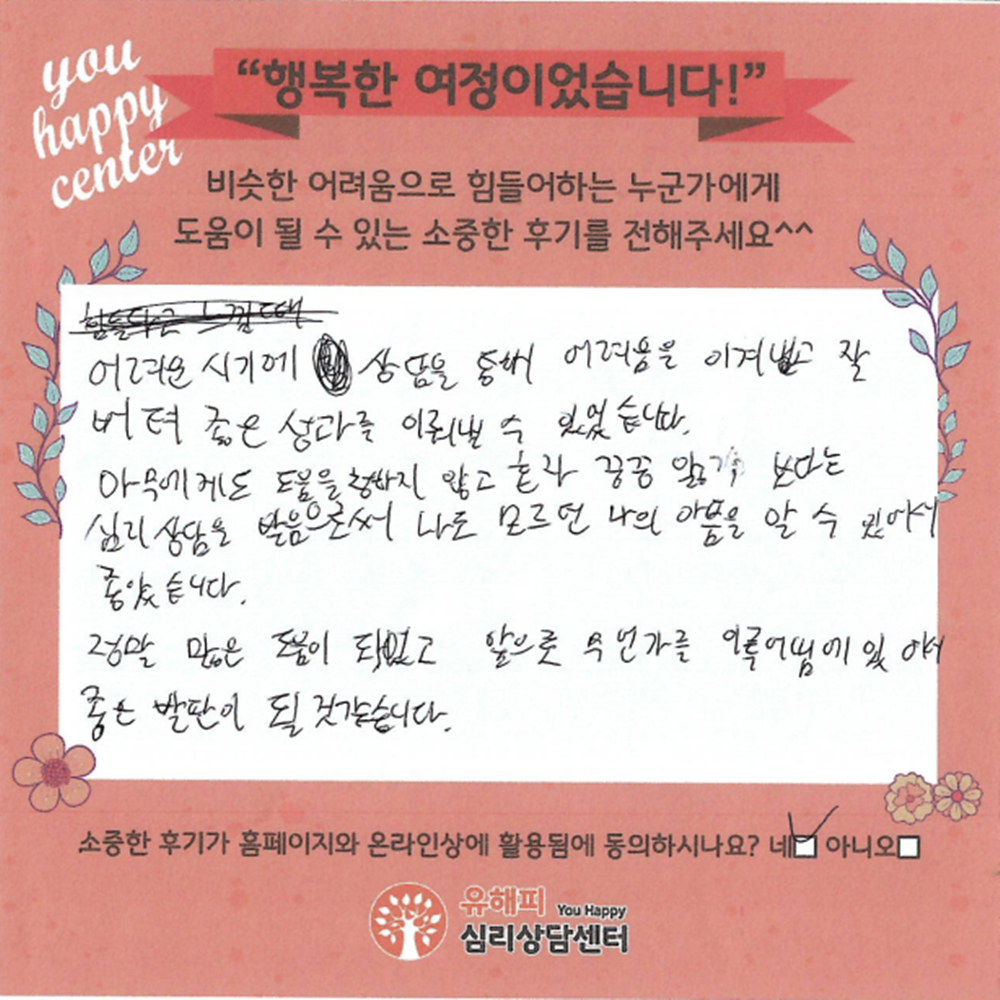 you
happy
center
“행복한 여정이었습니다!”
비슷한 어려움으로 힘들어하는 누군가에게
도움이 될 수 있는 소중한 후기를 전해주세요^^
힘들다고 느낄때
어려운 시기에 상담을 통해 어려움을 이겨내고 잘
버텨 좋은 성과를 이뤄낼 수 있었습니다.
아무에게도 도움을 청하지 않고 혼자 끙끙 앓기 보다는
심리상담을 받음으로써 나도 모르던 나의 아픔을 알 수 있어서
좋았습니다.
정말 많은 도움이 되었고 앞으로 무언가를 이룸에 있어서
좋은 발판이 될 것같습니다.
소중한 후기가 홈페이지와 온라인상에 활용됨에 동의하시나요? 네 아니오
유해피 You Happy
심리상담센터